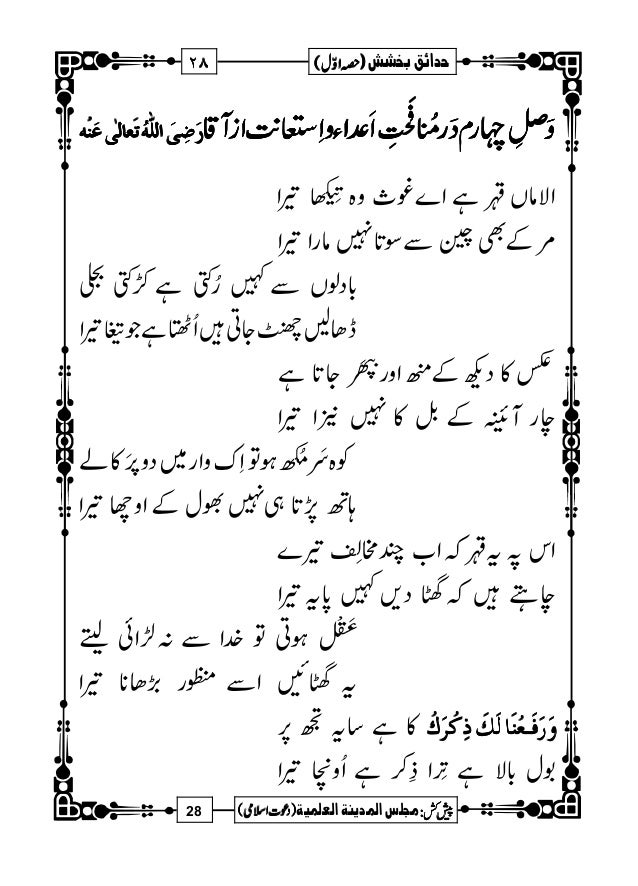 حدائقِ بخشش (حصہ اوّل)
۲۸
وَصلِ چہارم دَر مُنافَحَتِ اَعداء و اِستعانت از آقا رَضِیَ اللّٰہُ تَعالٰی عَنْہ
الاماں قہر ہے اے غوث وہ تِیکھا تیرا
مر کے بھی چین سے سوتا نہیں مارا تیرا
بادلوں سے کہیں رُکتی ہے کڑکتی بجلی
ڈھالیں چھنٹ جاتی ہیں اُٹھتا ہے جو تیغا تیرا
عکس کا دیکھ کے منھ اور بِپھَر جاتا ہے
چار آئینہ کے بل کا نہیں نیزا تیرا
کوہ سَر مُکھ ہو تو اِک وار میں دو پَر کالے
ہاتھ پڑتا ہی نہیں بھول کے اوچھا تیرا
اس پہ یہ قہر کہ اب چند مخالِف تیرے
چاہتے ہیں کہ گھٹا دیں کہیں پایہ تیرا
عَقْل ہوتی تو خدا سے نہ لڑائی لیتے
یہ گھٹائیں اسے منظور بڑھانا تیرا
وَرَفَعْنَا لَکَ ذِکْرَکَ کا ہے سایہ تجھ پر
بول بالا ہے تِرا ذِکر ہے اُونچا تیرا
پیش کش: مجلس المدینة العلمیة (دعوتِ اسلامی)
28